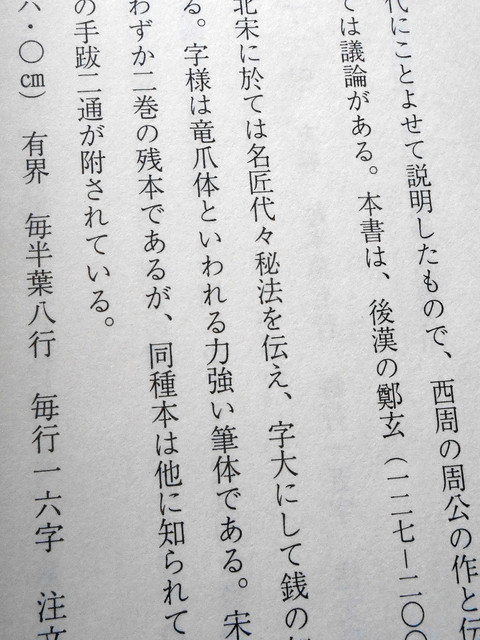 代にことよせて説明したもので、西周の周公の作と伝
ては議論がある。本書は、後漢の鄭玄（一二七－二〇〇
北宋に於ては名匠代々秘法を伝え、字大にして銭の
る。字様は竜爪体といわれる力強い筆体である。宋
わずか二巻の残本であるが、同種本は他に知られて
の手跋二通が附されている。
六・〇㎝）　有界　毎半葉八行　毎行一六字　注文